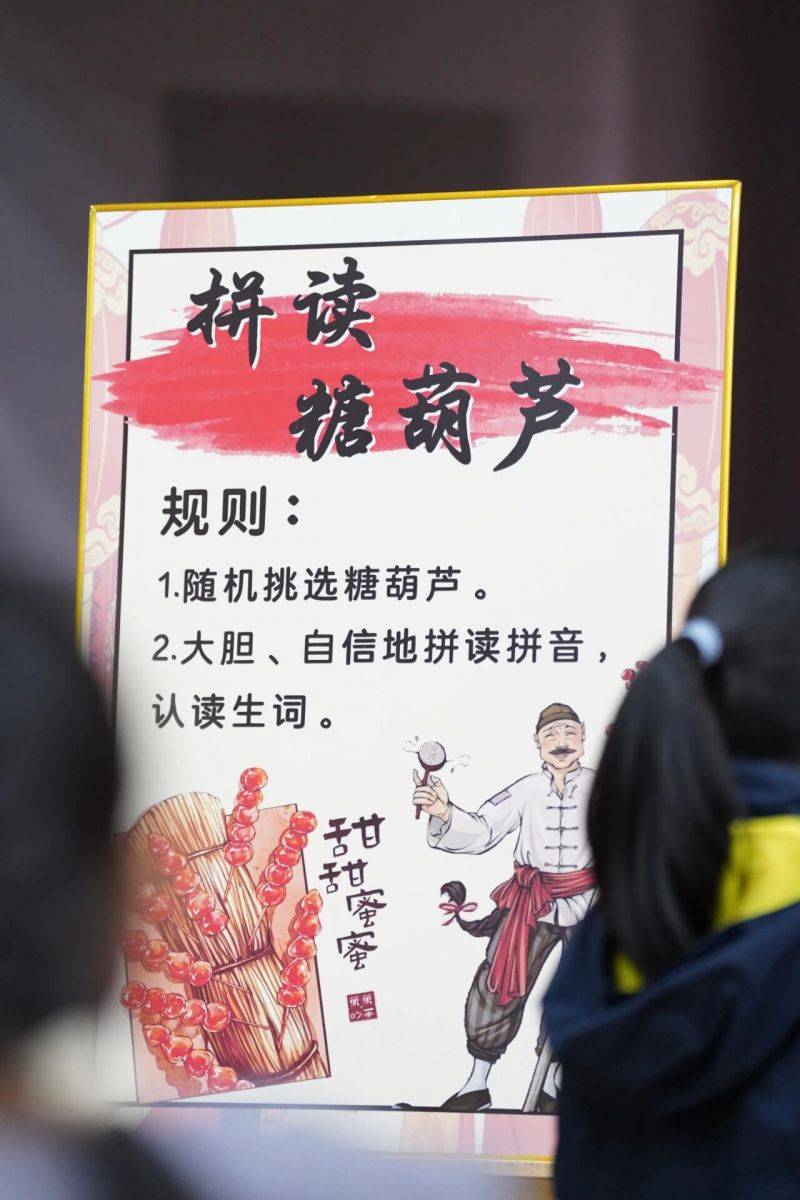 拼读
糖葫芦
规则：
1.随机挑选糖葫芦。
2.大胆、自信地拼读拼音，
认读生词。
甜
甜
蜜
蜜